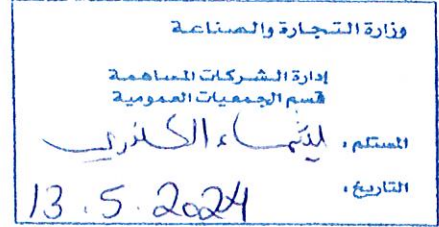 وزارة التجارة والصناعة
إدارة الشركات المساهمة
قسم الجمعيات العمومية
المستلم : الكندري
التاريخ : 13.5.2024